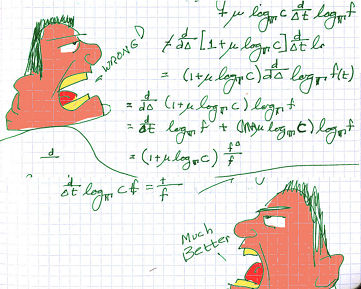 + μ log_m c d/Δt log_m f
≠ d/dΔ [1 + μ log_m c] d/Δt
WRONG!
= (1 + μ log_m c) d/dΔ log_m f(t)
= d/dΔ (1 + μ log_m c) log_m f
= d/Δt log_m f + ( μ log_m c) log_m f
d = (1 + μ log_m c) f^Δ/f
d/Δt log_m c f = 1/f
Much
Better